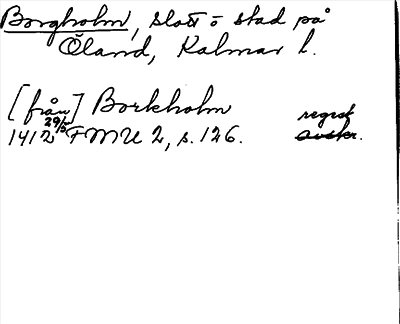 Borgholm, slott o stad på
Öland, Kalmar l.
[från] Borkholm regest
1412 29/5 FMU 2, s. 126. avskr.